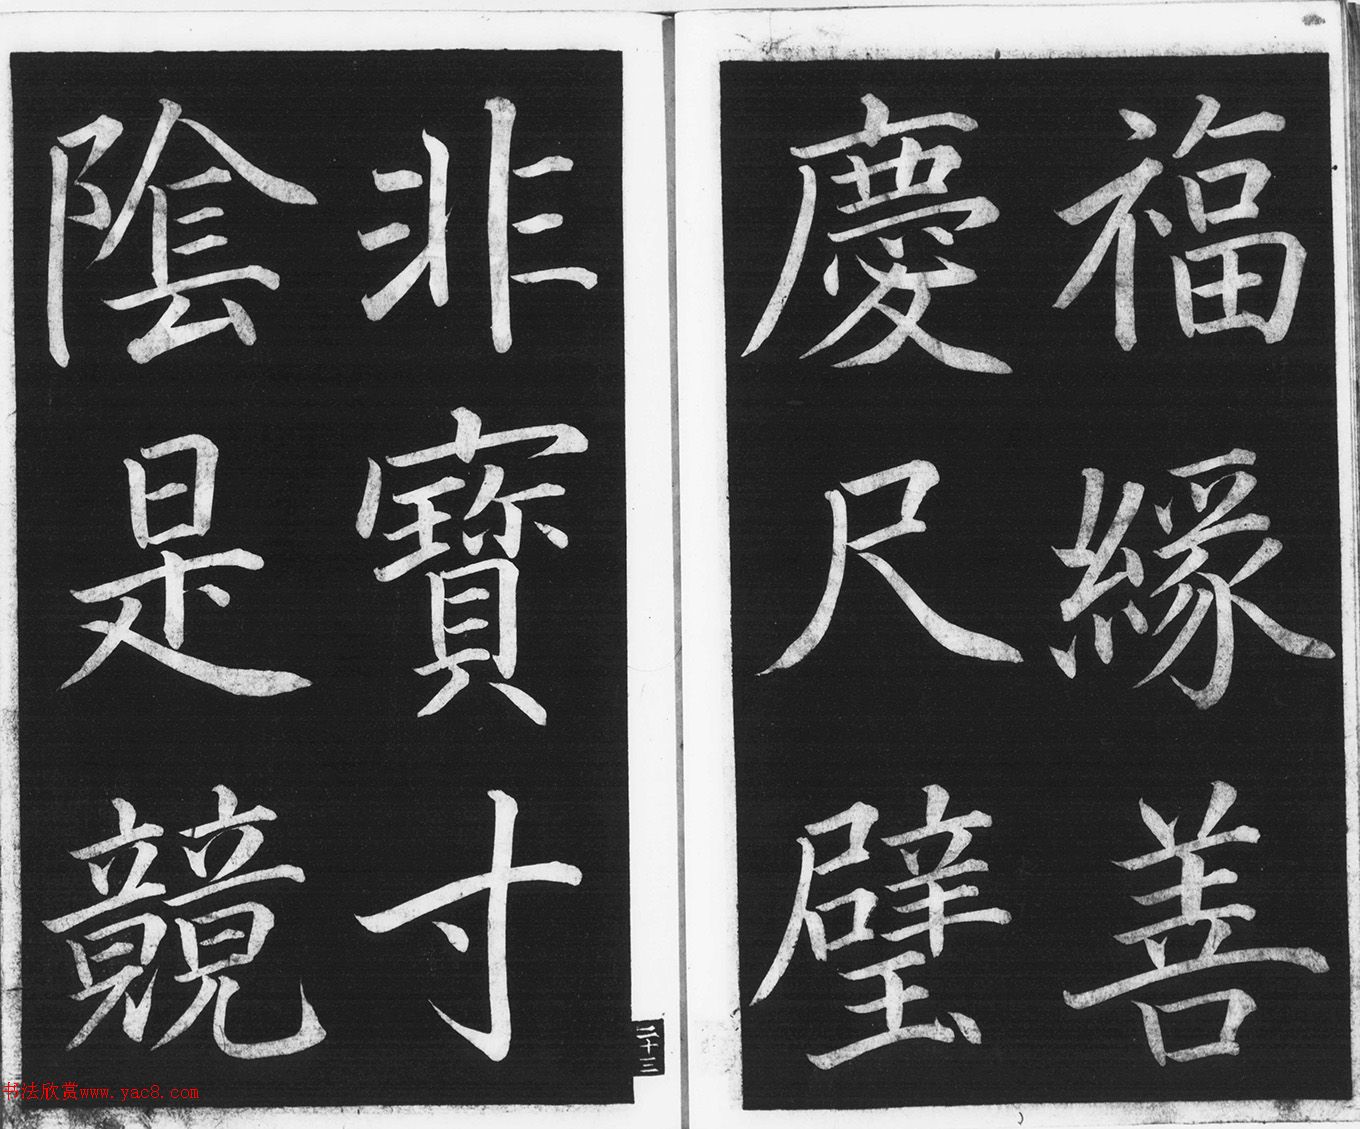 福緣善
慶尺璧
非寶寸
陰是競
二十三
书法欣赏www.yac8.com